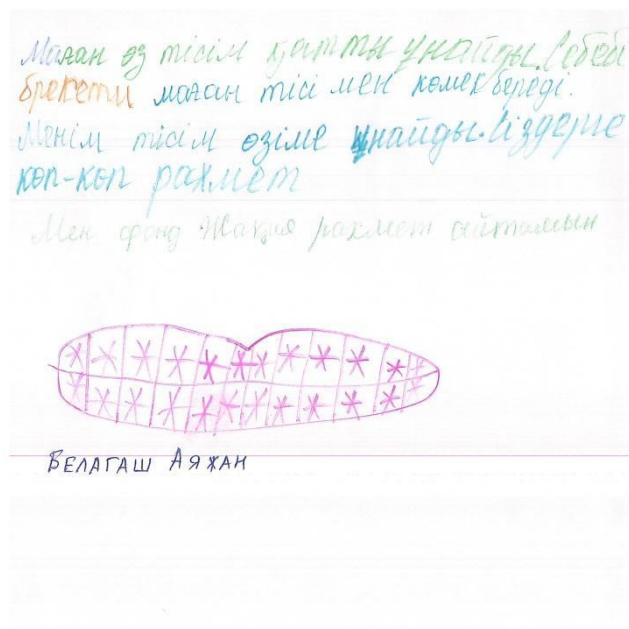 Маған өз тісім қатты ұнайды. Себебі
брекети маған тісі мен көмек береді.
Менім тісім өзіме ұнайды. Сіздерге
көп-көп рахмет
Мен фонд Жақия рахмет айтамын
БЕЛАГАШ АЯЖАН